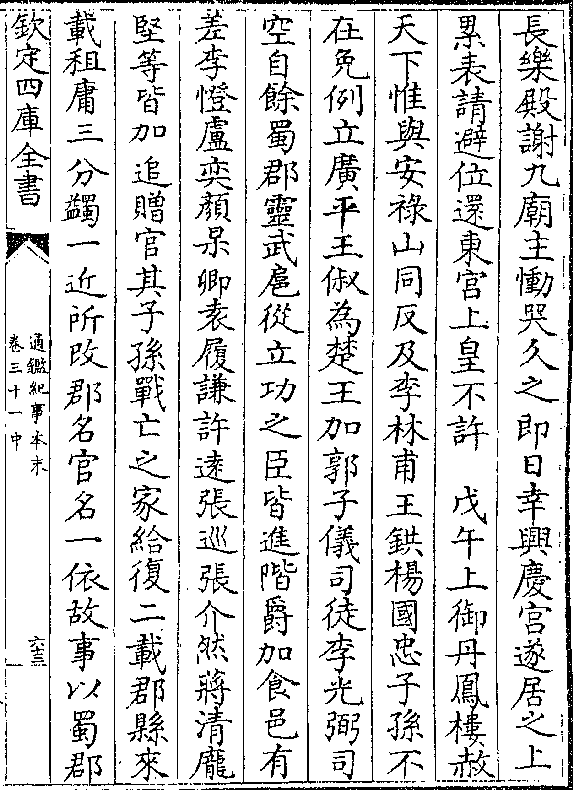 長樂殿謝九廟主慟哭久之即日幸興慶宮遂居之上
累表請避位還東宮上皇不許　戊午上御丹鳳樓赦
天下惟與安祿山同反及李林甫王鉷楊國忠子孫不
在免例立廣平王俶為楚王加郭子儀司徒李光弼司
空自餘蜀郡靈武扈從立功之臣皆進階爵加食邑有
差李憕盧奕顏杲卿袁履謙許遠張巡張介然蔣清龐
堅等皆加追贈官其子孫戰亡之家給復二載郡縣來
載租庸三分蠲一近所改郡名官名一依故事以蜀郡
欽定四庫全書
通鑑紀事本末
卷三十一中
六十三